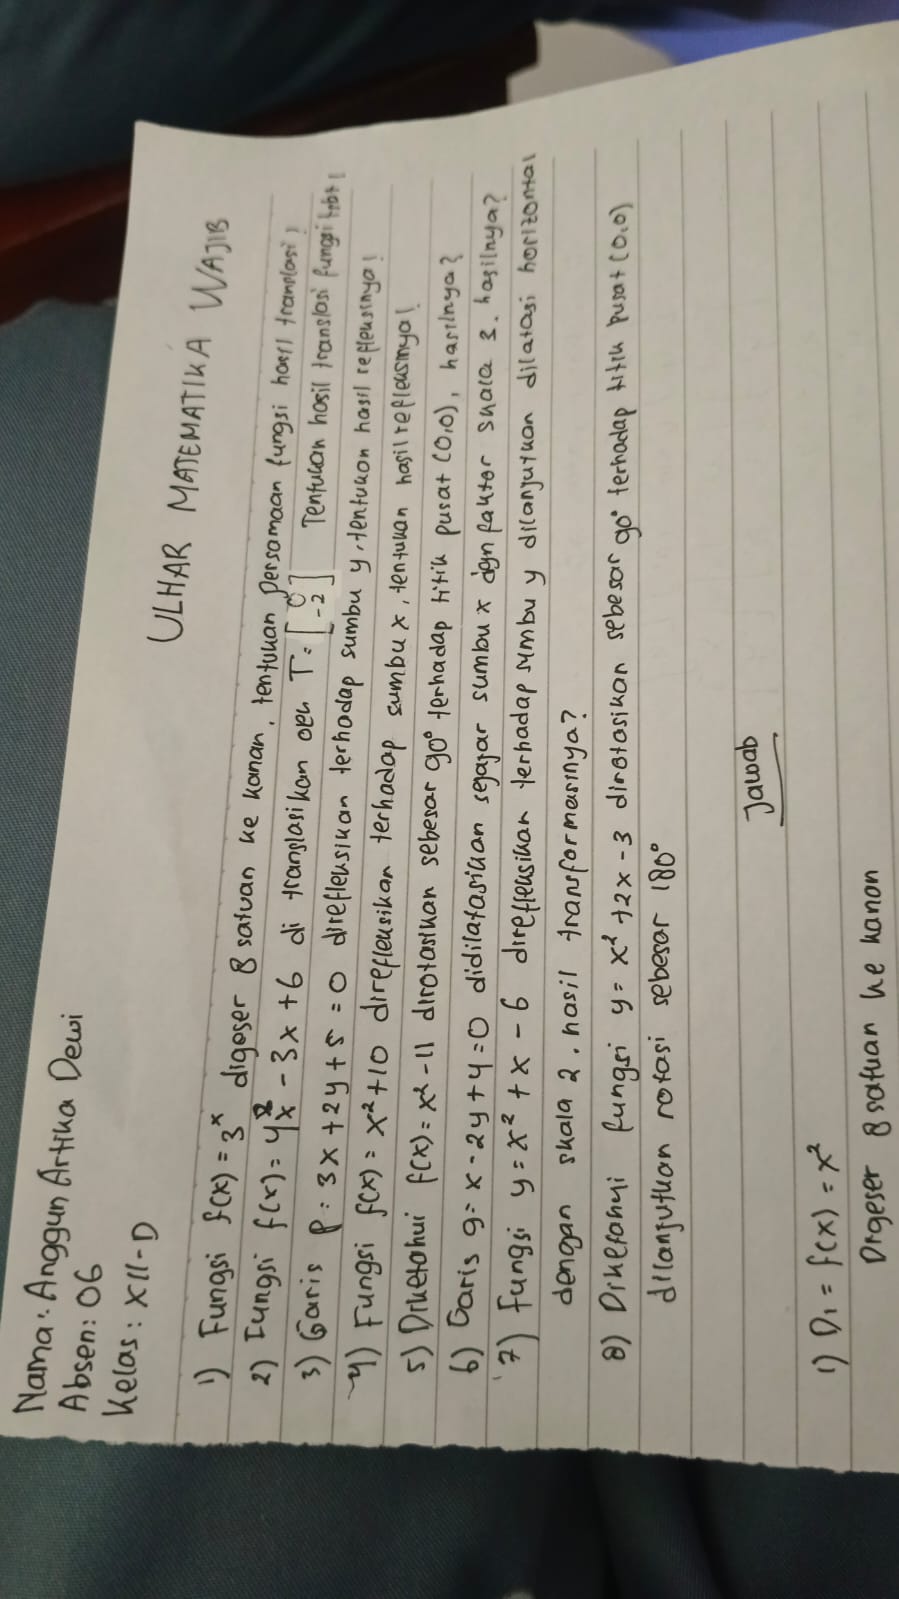 Nama: Anggun Artika Dewi
Absen: 06
Kelas: XII-D
ULHAR MATEMATIKA WAJIB
1) Fungsi f(x) = 3ˣ digeser 8 satuan ke kanan, tentukan persamaan fungsi hasil tranplasi!
2) Fungsi f(x) = 4x² - 3x + 6 di translasikan oleh T = [0 -2] Tentukan hasil translasi fungsi trbt!
3) Garis p : 3x + 2y + 5 = 0 direfleksikan terhadap sumbu y, tentukan hasil refleksinya!
4) Fungsi f(x) = x² + 10 direfleksikan terhadap sumbu x, tentukan hasil refleksinya!
5) Diketahui f(x) = x² - 11 dirotasikan sebesar 90° terhadap titik pusat (0,0), hasilnya?
6) Garis g = x - 2y + 4 = 0 didilatasikan sejajar sumbu x dgn faktor skala 3. hasilnya?
7) Fungsi y = x² + x - 6 direfleksikan terhadap sumbu y dilanjutkan dilatasi horizontal
dengan skala 2. hasil transformasinya?
8) Diketahui fungsi y = x² + 2x - 3 dirotasikan sebesar 90° terhadap titik pusat (0,0)
dilanjutkan rotasi sebesar 180°
Jawab
1) D₁ = f(x) = x²
Digeser 8 satuan ke kanan